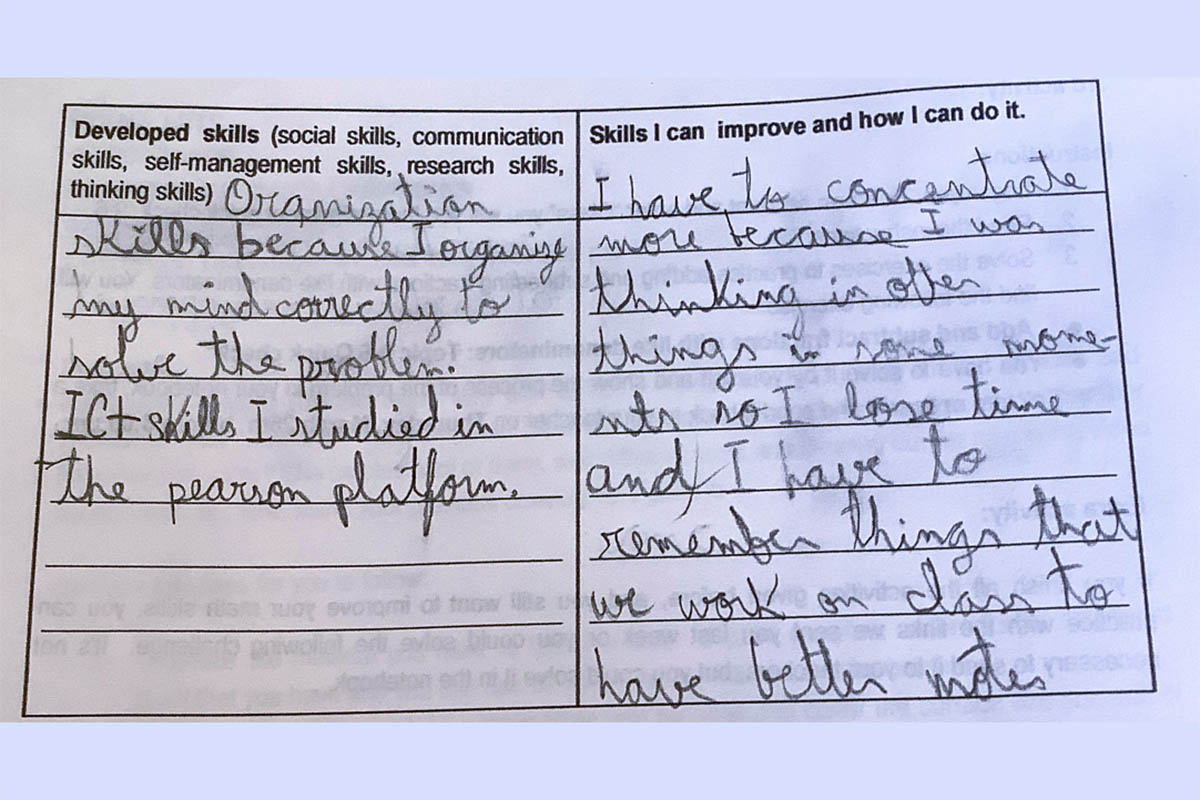 Developed skills (social skills, communication
skills, self-management skills, research skills,
thinking skills) Organization
skills because I organize
my mind correctly to
solve the problem.
ICt skills I studied in
the pearson platform.
Skills I can improve and how I can do it.
I have to concentrate
more because I was
thinking in other
things in some mome-
nts so I lose time
and I have to
remember things that
we work on class to
have better notes